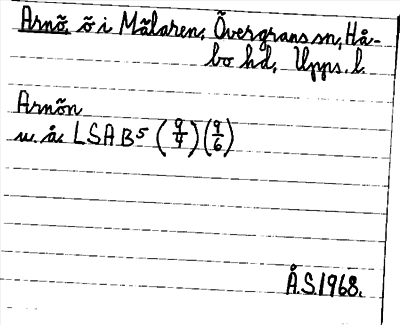 Arnö, ö i Mälaren, Övergrans sn, Hå-
bo hd, Upps. l.
Arnön
u. å. LSA B5 (9/4) (9/6)
Å.S. 1968.